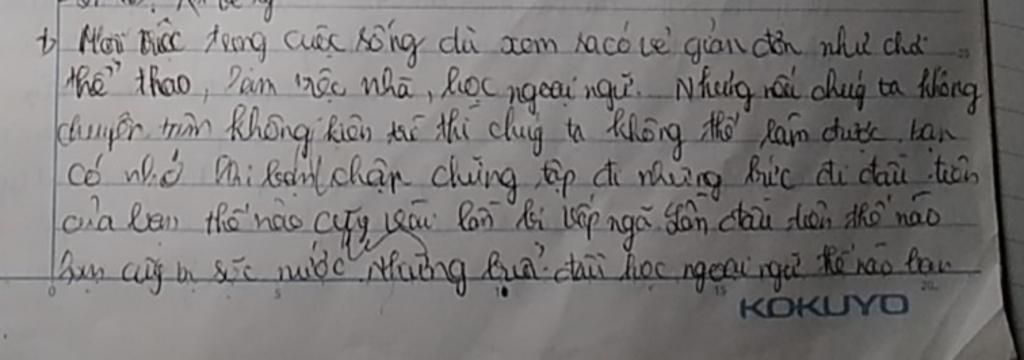 Mọi việc trong cuộc sống dù xem ra có vẻ giản đơn như chơi
thể thao, làm việc nhà, học ngoại ngữ. Nhưng nếu chúng ta không
chuyên tâm không kiên trì thì chúng ta không thể làm được. bạn
có nhớ khi bạn chập chững tập đi những bước đi đầu tiên
của bạn thế nào cũng vài lần bị vấp ngã. Lần đầu tiên thế nào
bạn cũng bị sặc nước. Những buổi đầu học ngoại ngữ thế nào bạn
0 5 10 15 20
KOKUYO